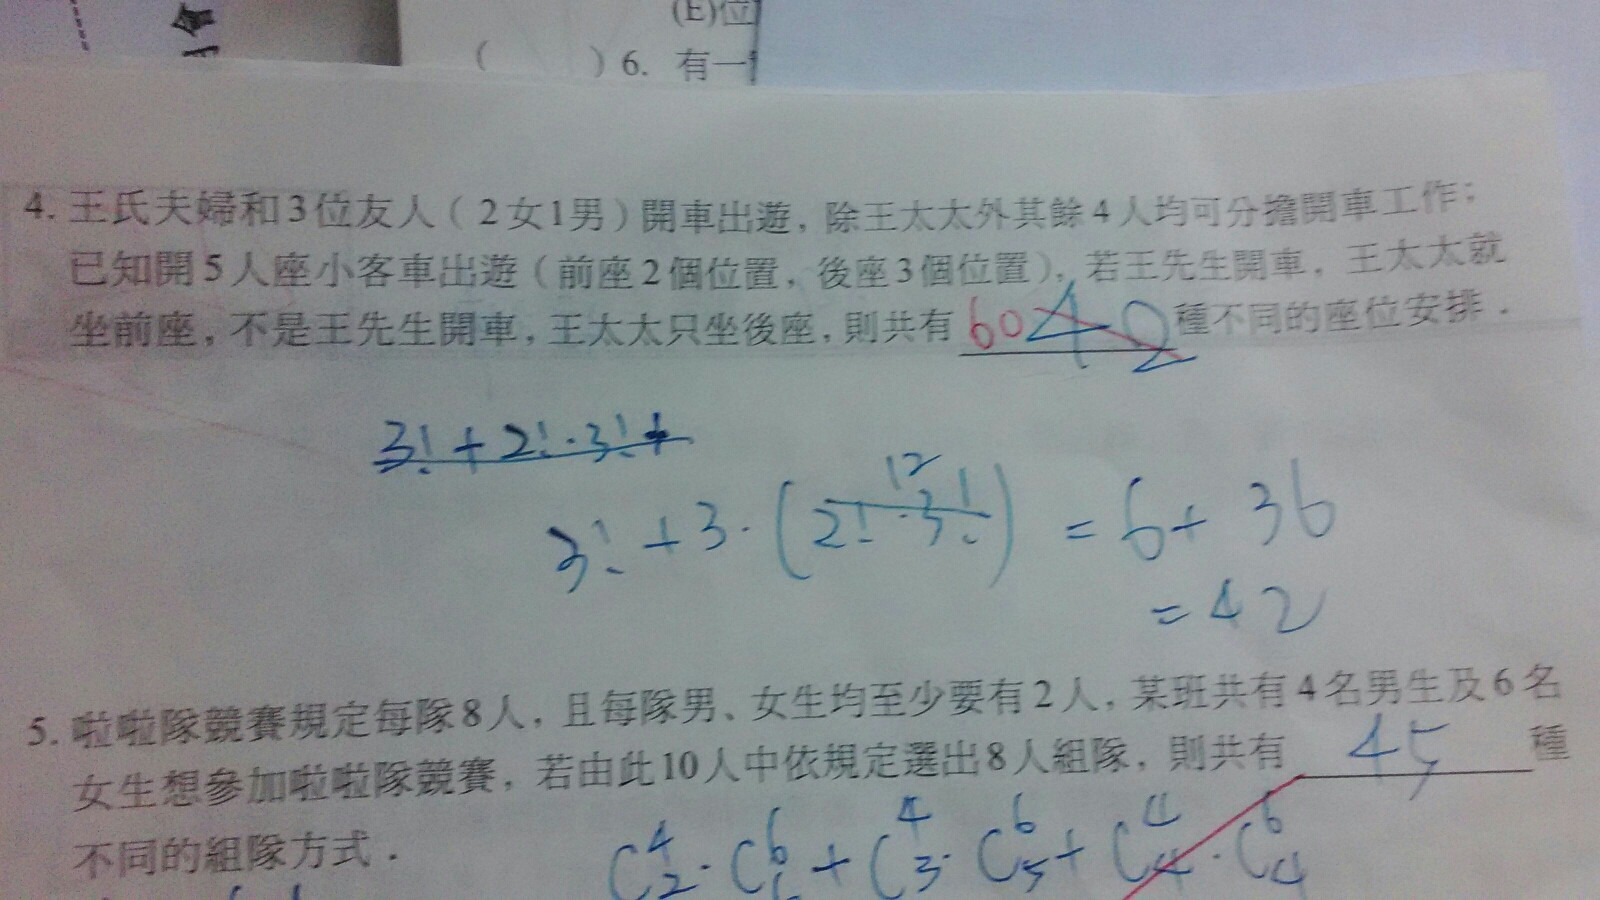 會
(E)位
( )6. 有一
4. 王氏夫婦和3位友人（2女1男）開車出遊，除王太太外其餘4人均可分擔開車工作；
已知開5人座小客車出遊（前座2個位置，後座3個位置），若王先生開車，王太太就
坐前座，不是王先生開車，王太太只坐後座，則共有 60 42 種不同的座位安排．
3! + 2!·3! +
3! + 3·(2!·3!) = 6 + 36
12
= 42
5. 啦啦隊競賽規定每隊8人，且每隊男、女生均至少要有2人，某班共有4名男生及6名
女生想參加啦啦隊競賽，若由此10人中依規定選出8人組隊，則共有 45 種
不同的組隊方式．
C⁴₂·C⁶₆ + C⁴₃·C⁶₅ + C⁴₄·C⁶₄